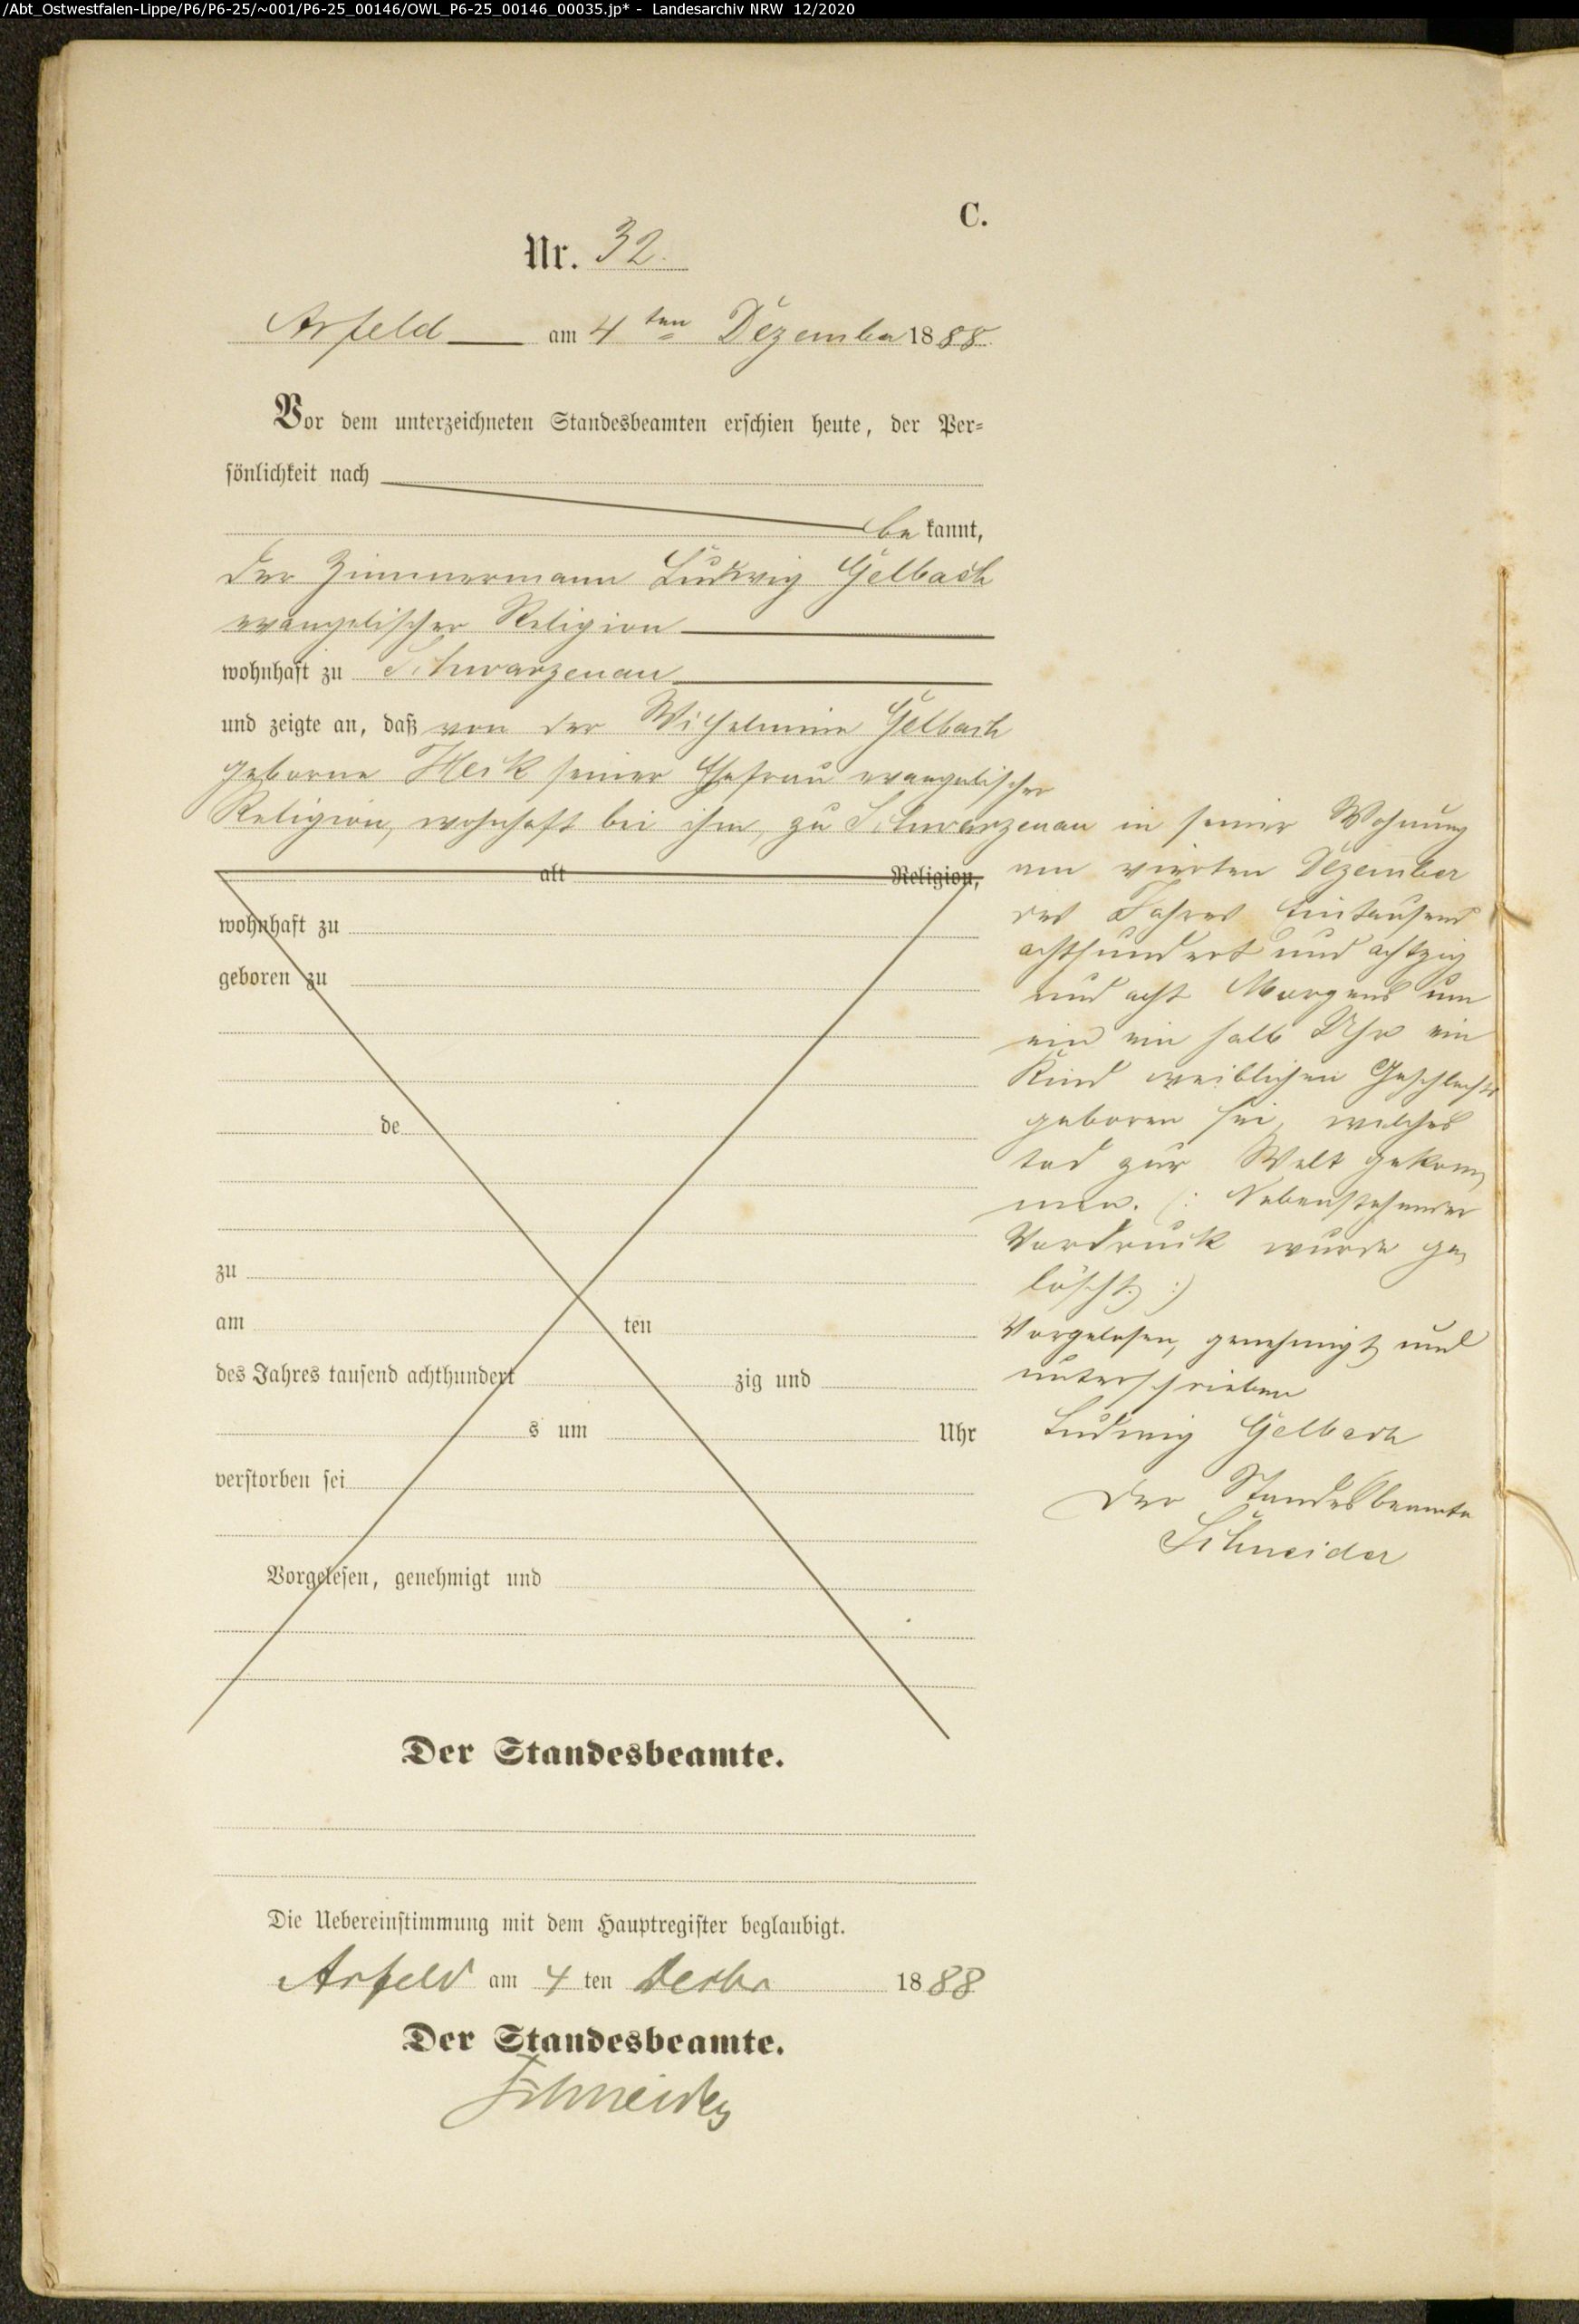 /Abt_Ostwestfalen-Lippe/P6/P6-25/~001/P6-25_00146/OWL_P6-25_00146_00035.jp* - Landesarchiv NRW 12/2020
C.
Nr. 32.
Arfeld am 4ten Dezember 1888.
Vor dem unterzeichneten Standesbeamten erschien heute, der Per-
sönlichkeit nach
be kannt,
der Zimmermann Ludwig Gelbach
evangelischer Religion
wohnhaft zu Schwarzenau
und zeigte an, daß von der Wilhelmine Gelbach
geborne Heck seiner Ehefrau evangelischer
Religion, wohnhaft bei ihm, zu Schwarzenau in seiner Wohnung
alt Religion,
wohnhaft zu
geboren zu
de
zu
am ten
des Jahres tausend achthundert zig und
s um Uhr
verstorben sei
Vorgelesen, genehmigt und
am vierten Dezember
des Jahres Eintausend
achthundert und achtzig
und acht Morgens um
ein ein halb Uhr ein
Kind weiblichen Geschlechts
geboren sei, welches
tod zur Welt gekom
men. (: Nebenstehender
Vordruck wurde ge
löscht. :)
Vorgelesen, genehmigt und
unterschrieben
Ludwig Gelbach
Der Standesbeamte
Schneider
Der Standesbeamte.
Die Uebereinstimmung mit dem Hauptregister beglaubigt.
Arfeld am 4 ten Dezbr 1888
Der Standesbeamte.
Schneider